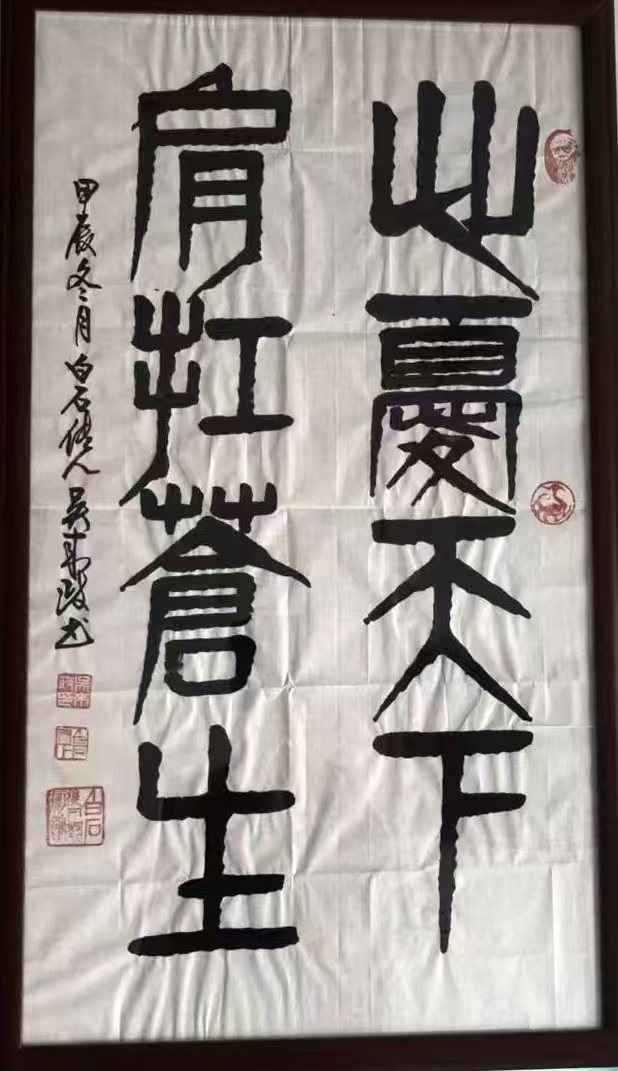 心憂天下
肩扛蒼生
甲辰冬月 白石傳人 吳東政书